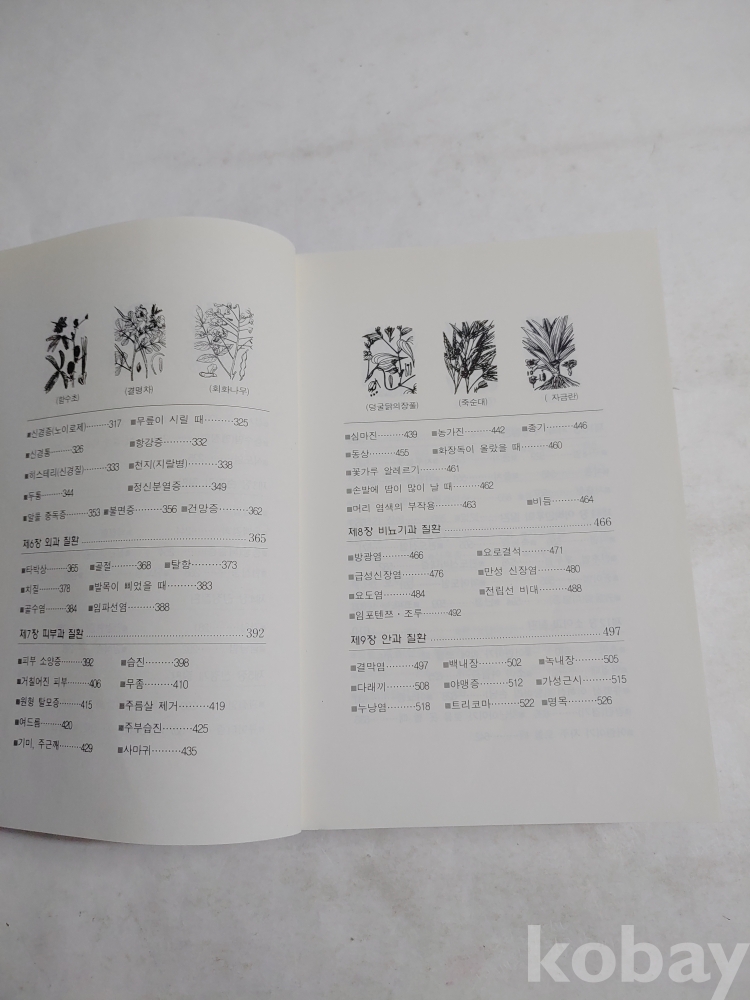 (함수초) (결명자) (회화나무)
■신경증(노이로제)………317 ■무릎이 시릴 때………325
■신경통………326 ■항강증………332
■히스테리(신경질)………333 ■천지(지랄병)………338
■두통………344 ■정신분열증………349
■알콜 중독증………353 ■불면증………356 ■건망증………362
제6장 외과 질환………365
■타박상………365 ■골절………368 ■탈항………373
■치질………378 ■발목이 삐었을 때………383
■골수염………384 ■임파선염………388
제7장 피부과 질환………392
■피부 소양증………392 ■습진………398
■거칠어진 피부………406 ■무좀………410
■원형 탈모증………415 ■주름살 제거………419
■여드름………420 ■주부습진………425
■기미, 주근깨………429 ■사마귀………435
(덩굴닭의장풀) (죽순대) (자금란)
■심마진………439 ■농가진………442 ■종기………446
■동상………455 ■화장독이 올랐을 때………460
■꽃가루 알레르기………461
■손발에 땀이 많이 날 때………462
■머리 염색의 부작용………463 ■비듬………464
제8장 비뇨기과 질환………466
■방광염………466 ■요로결석………471
■급성신장염………476 ■만성 신장염………480
■요도염………484 ■전립선 비대………488
■임포텐쯔·조루………492
제9장 안과 질환………497
■결막염………497 ■백내장………502 ■녹내장………505
■다래끼………508 ■야맹증………512 ■가성근시………515
■누낭염………518 ■트리코마………522 ■명목………526
kobay